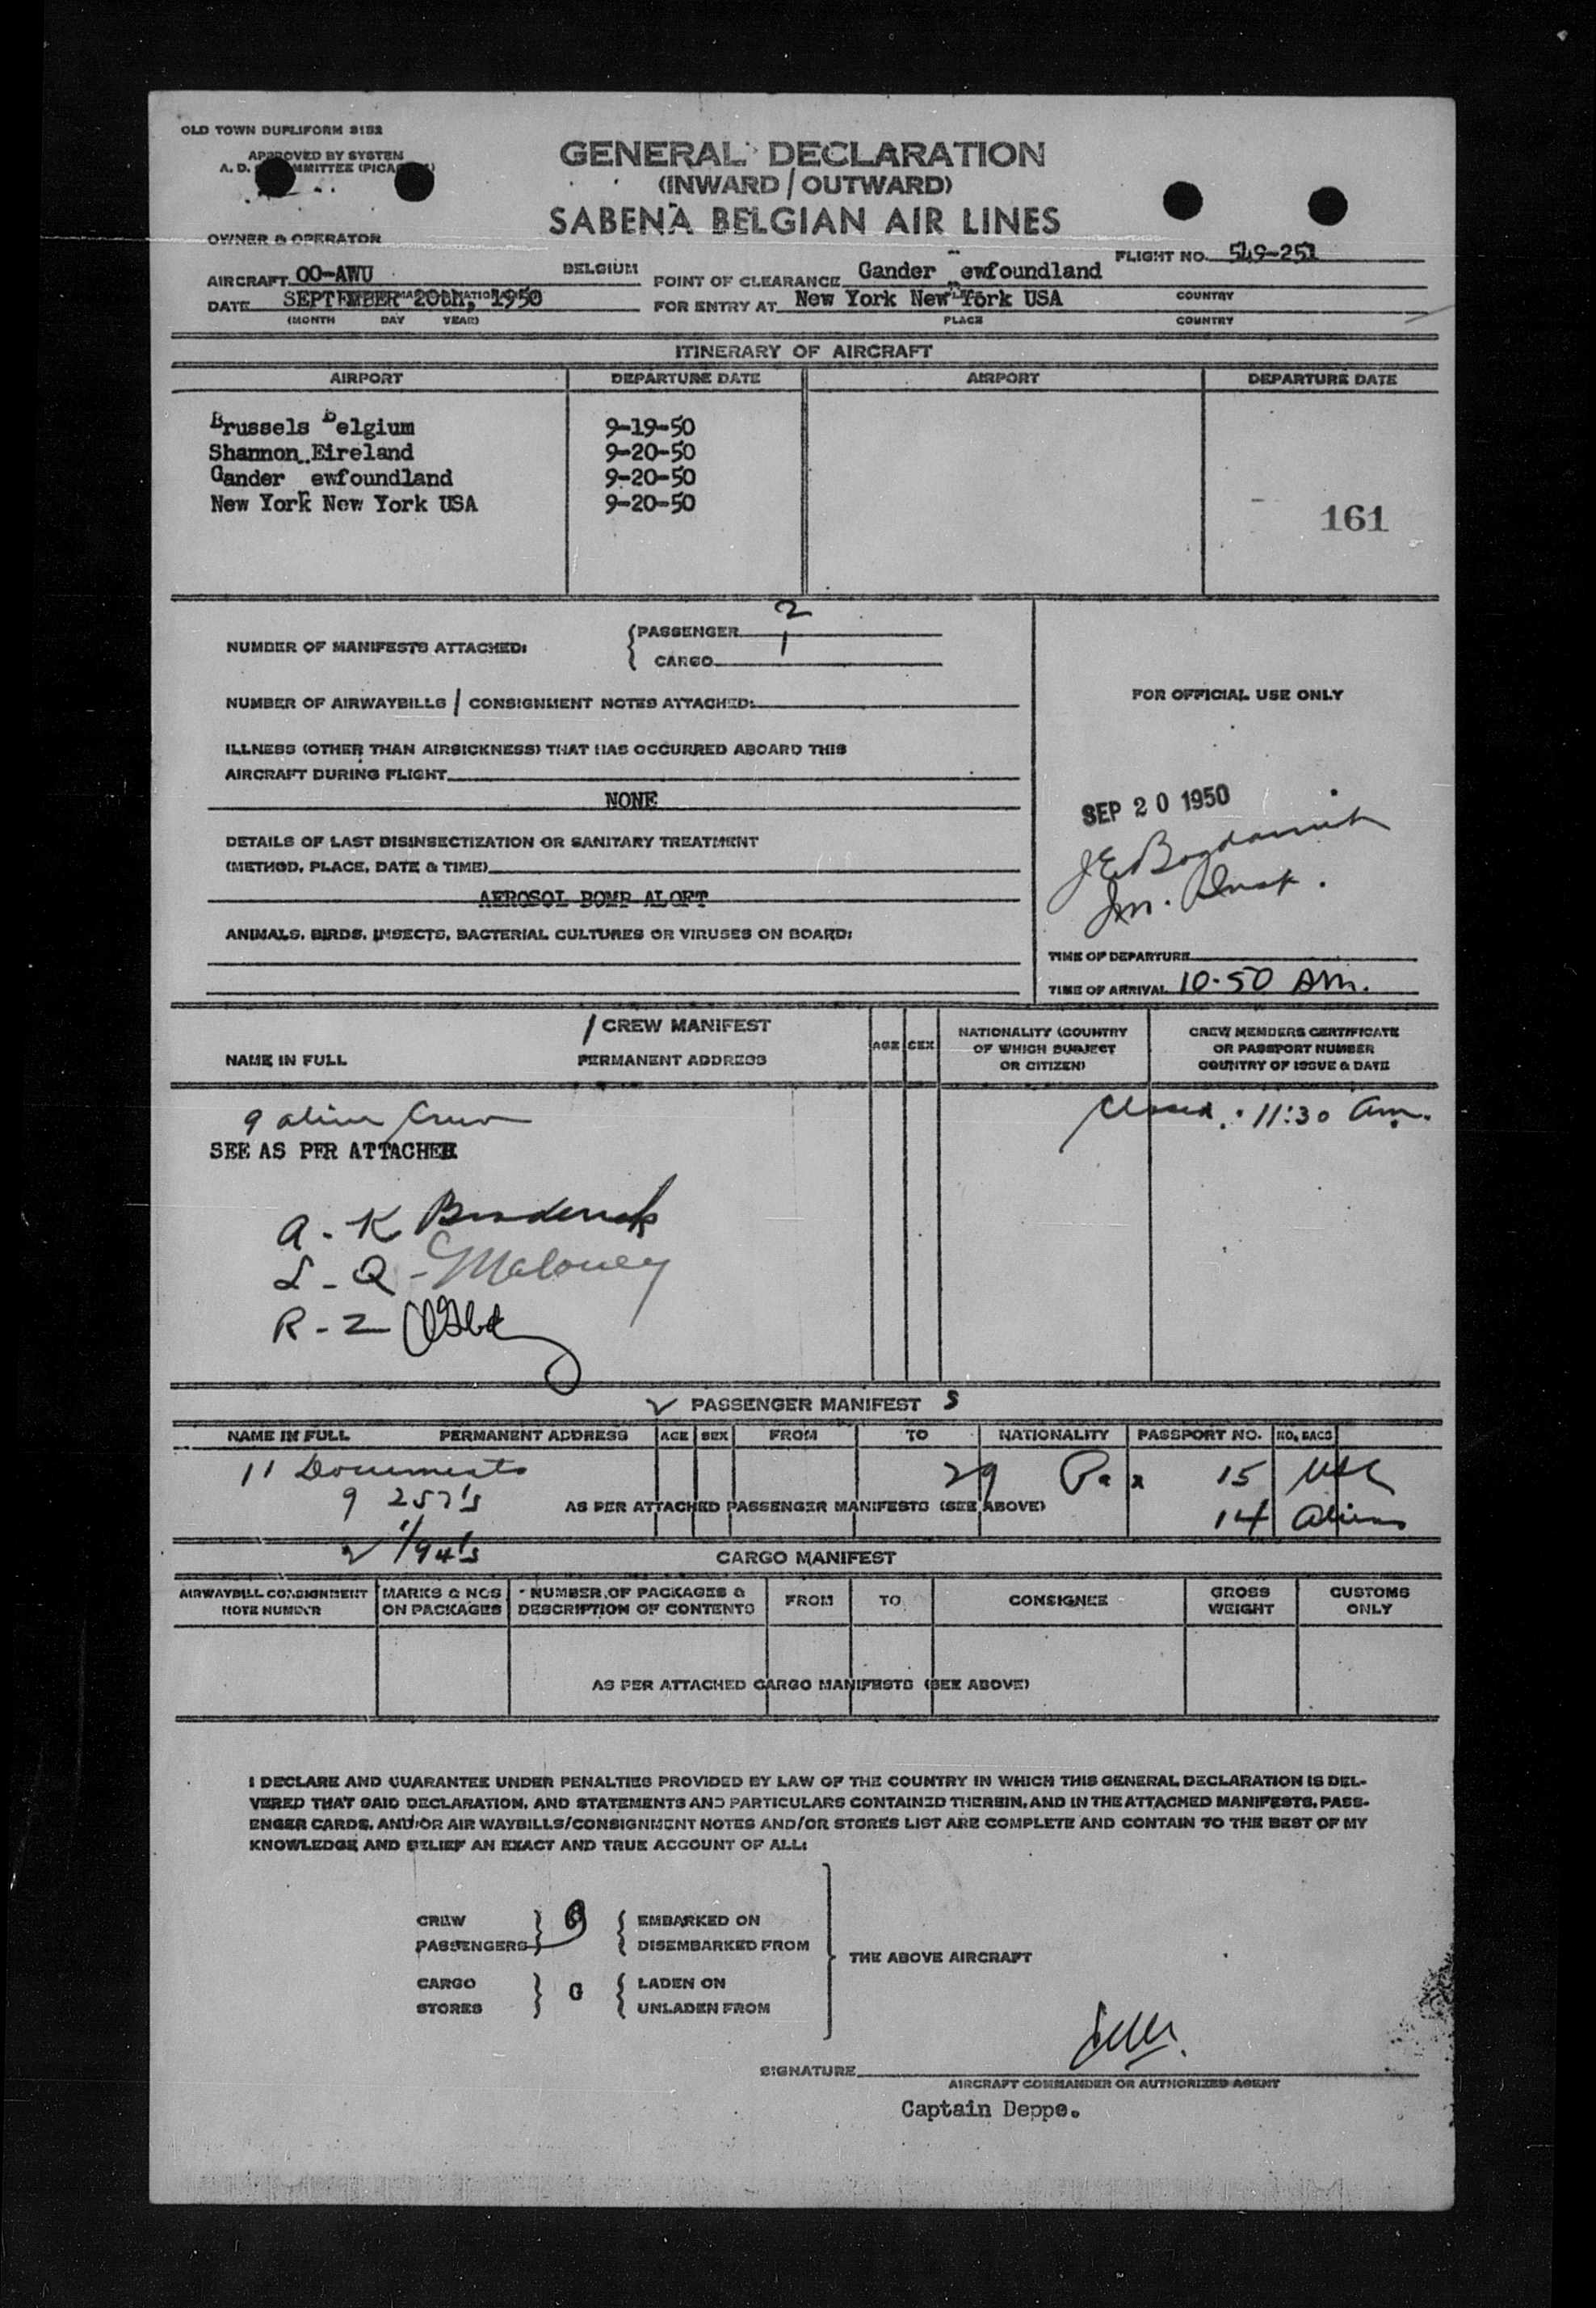 OLD TOWN DUPLIFORM 3152
APPROVED BY SYSTEM
A. D. COMMITTEE (PICA
GENERAL DECLARATION
(INWARD / OUTWARD)
SABENA BELGIAN AIR LINES
OWNER & OPERATOR
FLIGHT NO. 549-251
AIRCRAFT OO-AWU BELGIUM POINT OF CLEARANCE Gander Newfoundland
DATE SEPTEMBER 20th, 1950 FOR ENTRY AT New York New York USA COUNTRY
(MONTH DAY YEAR) PLACE COUNTRY
ITINERARY OF AIRCRAFT
AIRPORT DEPARTURE DATE AIRPORT DEPARTURE DATE
Brussels Belgium 9-19-50
Shannon Eireland 9-20-50
Gander Newfoundland 9-20-50
New York New York USA 9-20-50
161
NUMBER OF MANIFESTS ATTACHED: PASSENGER 2
CARGO 1
NUMBER OF AIRWAYBILLS / CONSIGNMENT NOTES ATTACHED:
FOR OFFICIAL USE ONLY
ILLNESS (OTHER THAN AIRSICKNESS) THAT HAS OCCURRED ABOARD THIS
AIRCRAFT DURING FLIGHT
NONE
SEP 20 1950
DETAILS OF LAST DISINSECTIZATION OR SANITARY TREATMENT
(METHOD, PLACE, DATE & TIME)
AEROSOL BOMB ALOFT
ANIMALS, BIRDS, INSECTS, BACTERIAL CULTURES OR VIRUSES ON BOARD:
TIME OF DEPARTURE
TIME OF ARRIVAL 10.50 AM.
1 CREW MANIFEST
NAME IN FULL PERMANENT ADDRESS AGE SEX
NATIONALITY (COUNTRY
OF WHICH SUBJECT
OR CITIZEN)
CREW MEMBERS CERTIFICATE
OR PASSPORT NUMBER
COUNTRY OF ISSUE & DATE
9 alien Crew Closed. 11:30 am.
SEE AS PER ATTACHED
A - K Broderick
L - Q - Maloney
R - Z
2 PASSENGER MANIFEST S
NAME IN FULL PERMANENT ADDRESS AGE SEX FROM TO NATIONALITY PASSPORT NO. NO. BAGS
11 Documents 29 Pax 15 USC
9 257's AS PER ATTACHED PASSENGER MANIFESTS (SEE ABOVE) 14 Aliens
2 1/94's
CARGO MANIFEST
AIRWAYBILL CONSIGNMENT
NOTE NUMBER
MARKS & NOS
ON PACKAGES
NUMBER OF PACKAGES &
DESCRIPTION OF CONTENTS
FROM TO CONSIGNEE
GROSS
WEIGHT
CUSTOMS
ONLY
AS PER ATTACHED CARGO MANIFESTS (SEE ABOVE)
I DECLARE AND GUARANTEE UNDER PENALTIES PROVIDED BY LAW OF THE COUNTRY IN WHICH THIS GENERAL DECLARATION IS DEL-
VERED THAT SAID DECLARATION, AND STATEMENTS AND PARTICULARS CONTAINED THEREIN, AND IN THE ATTACHED MANIFESTS, PASS-
ENGER CARDS, AND/OR AIR WAYBILLS/CONSIGNMENT NOTES AND/OR STORES LIST ARE COMPLETE AND CONTAIN TO THE BEST OF MY
KNOWLEDGE AND BELIEF AN EXACT AND TRUE ACCOUNT OF ALL:
CREW 9 EMBARKED ON
PASSENGERS DISEMBARKED FROM
THE ABOVE AIRCRAFT
CARGO 0 LADEN ON
STORES UNLADEN FROM
SIGNATURE
AIRCRAFT COMMANDER OR AUTHORIZED AGENT
Captain Deppe.